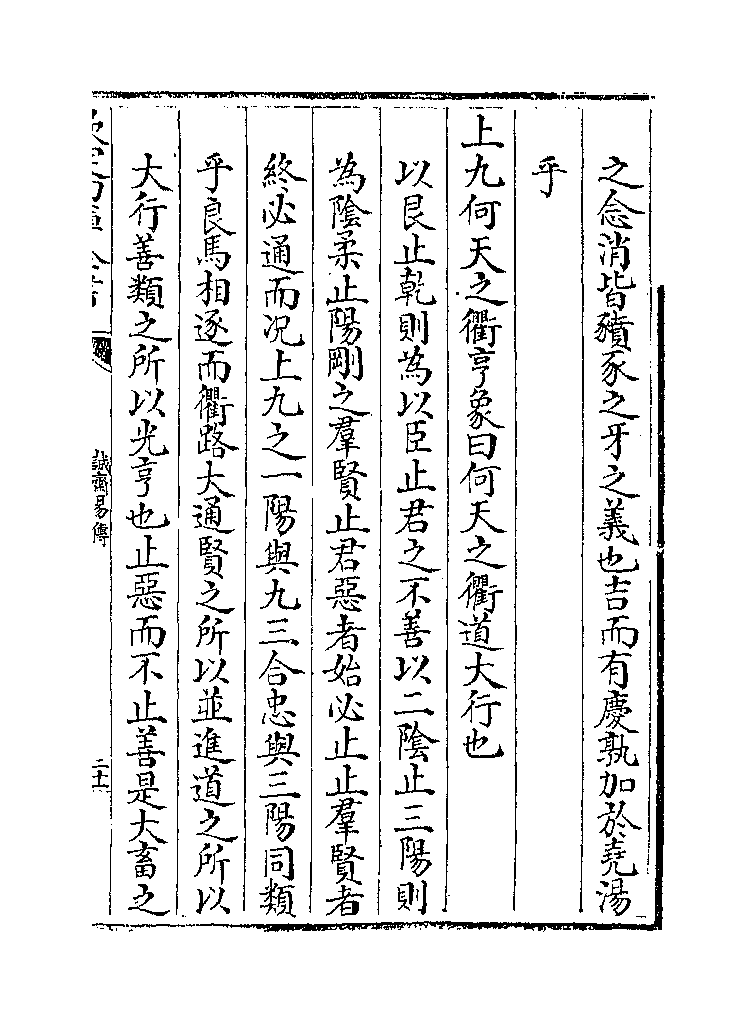 之念消皆豶豕之牙之義也吉而有慶孰加於堯湯
乎
上九何天之衢亨象曰何天之衢道大行也
以艮止乾則為以臣止君之不善以二陰止三陽則
為陰柔止陽剛之羣賢止君惡者始必止止羣賢者
終必通而况上九之一陽與九三合忠與三陽同類
乎良馬相逐而衢路大通賢之所以並進道之所以
大行善類之所以光亨也止惡而不止善是大畜之
誠齋易傳
二十一